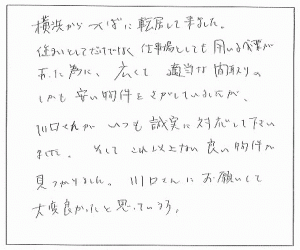 横浜からつくばに転居して来ました。
住まいとしてだけでなく仕事場としても用いる必要が
あった為に、広くて適当な間取りの
しかも安い物件をさがしていましたが、
川口さんがいつも誠実に対応して下さい
ました。そしてこれ以上ない良い物件が
見つかりました。川口さんにお願いして
大変良かったと思っている。